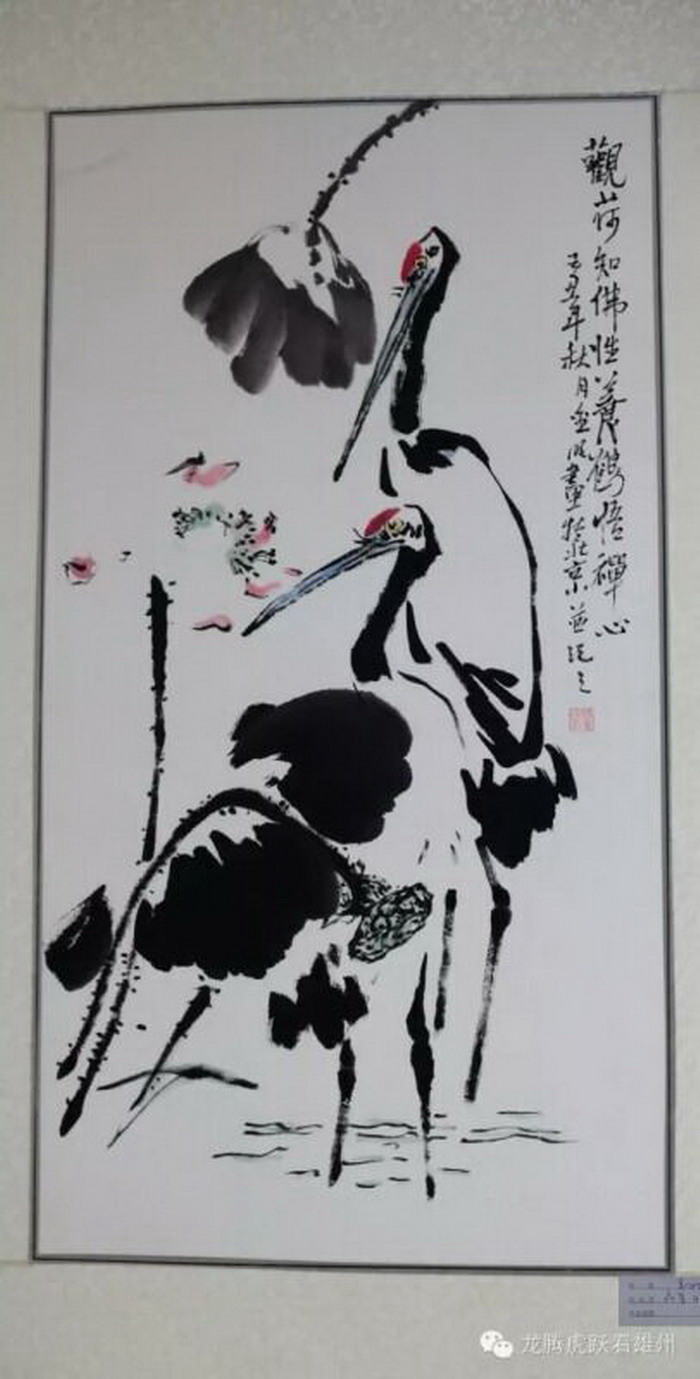 觀荷知佛性養鶴悟禪心
己丑年秋月金明畫於北京小並记之
龙腾虎跃石雄州